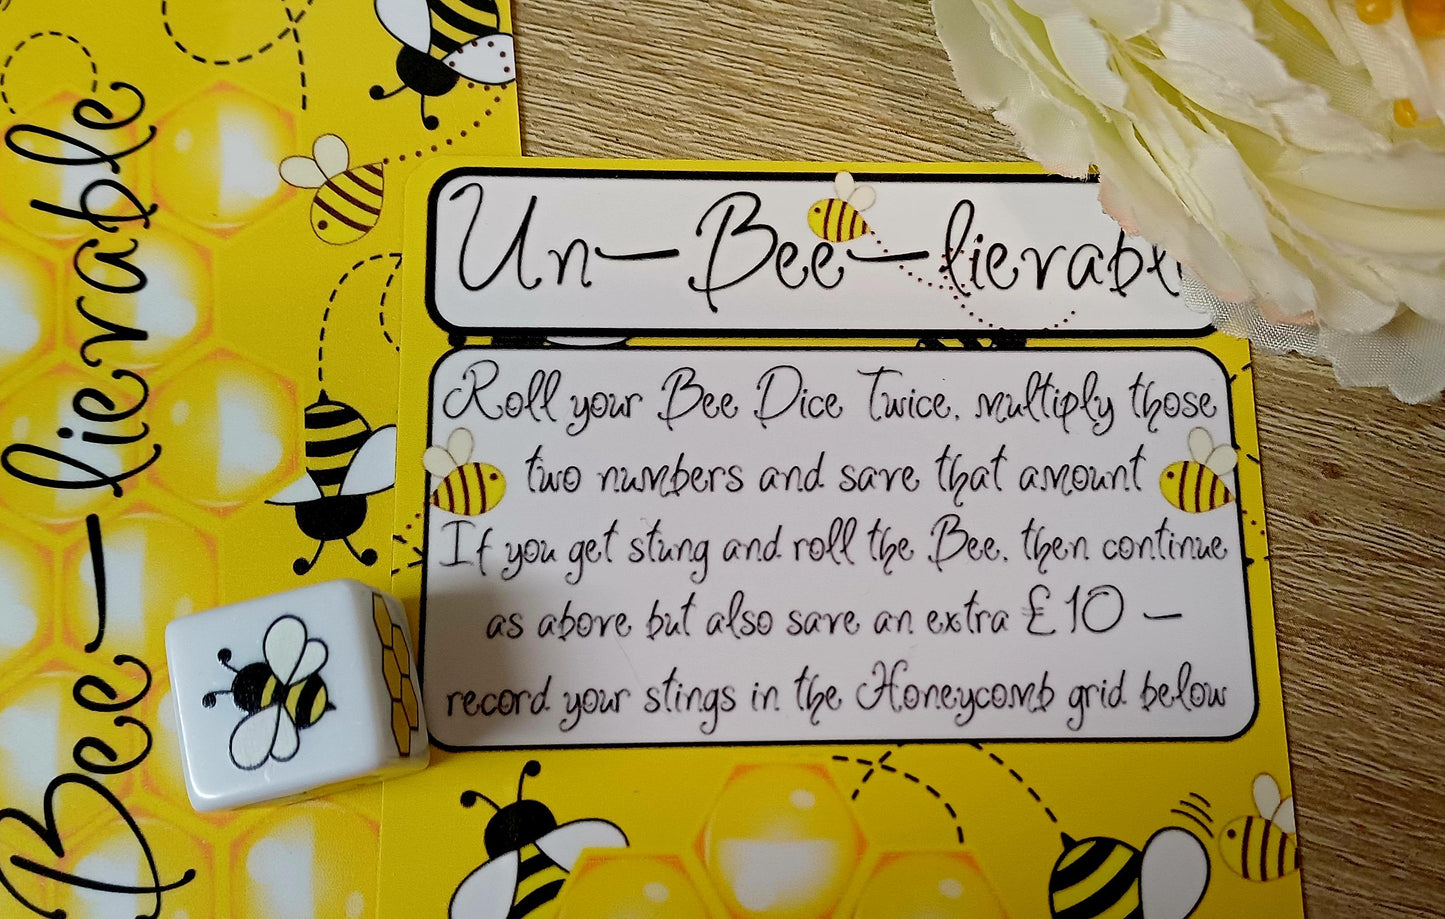 Bee-lierable
Un-Bee-lierabl
Roll your Bee Dice Twice, multiply those
two numbers and save that amount
If you get stung and roll the Bee, then continue
as above but also save an extra £10 -
record your stings in the Honeycomb grid below